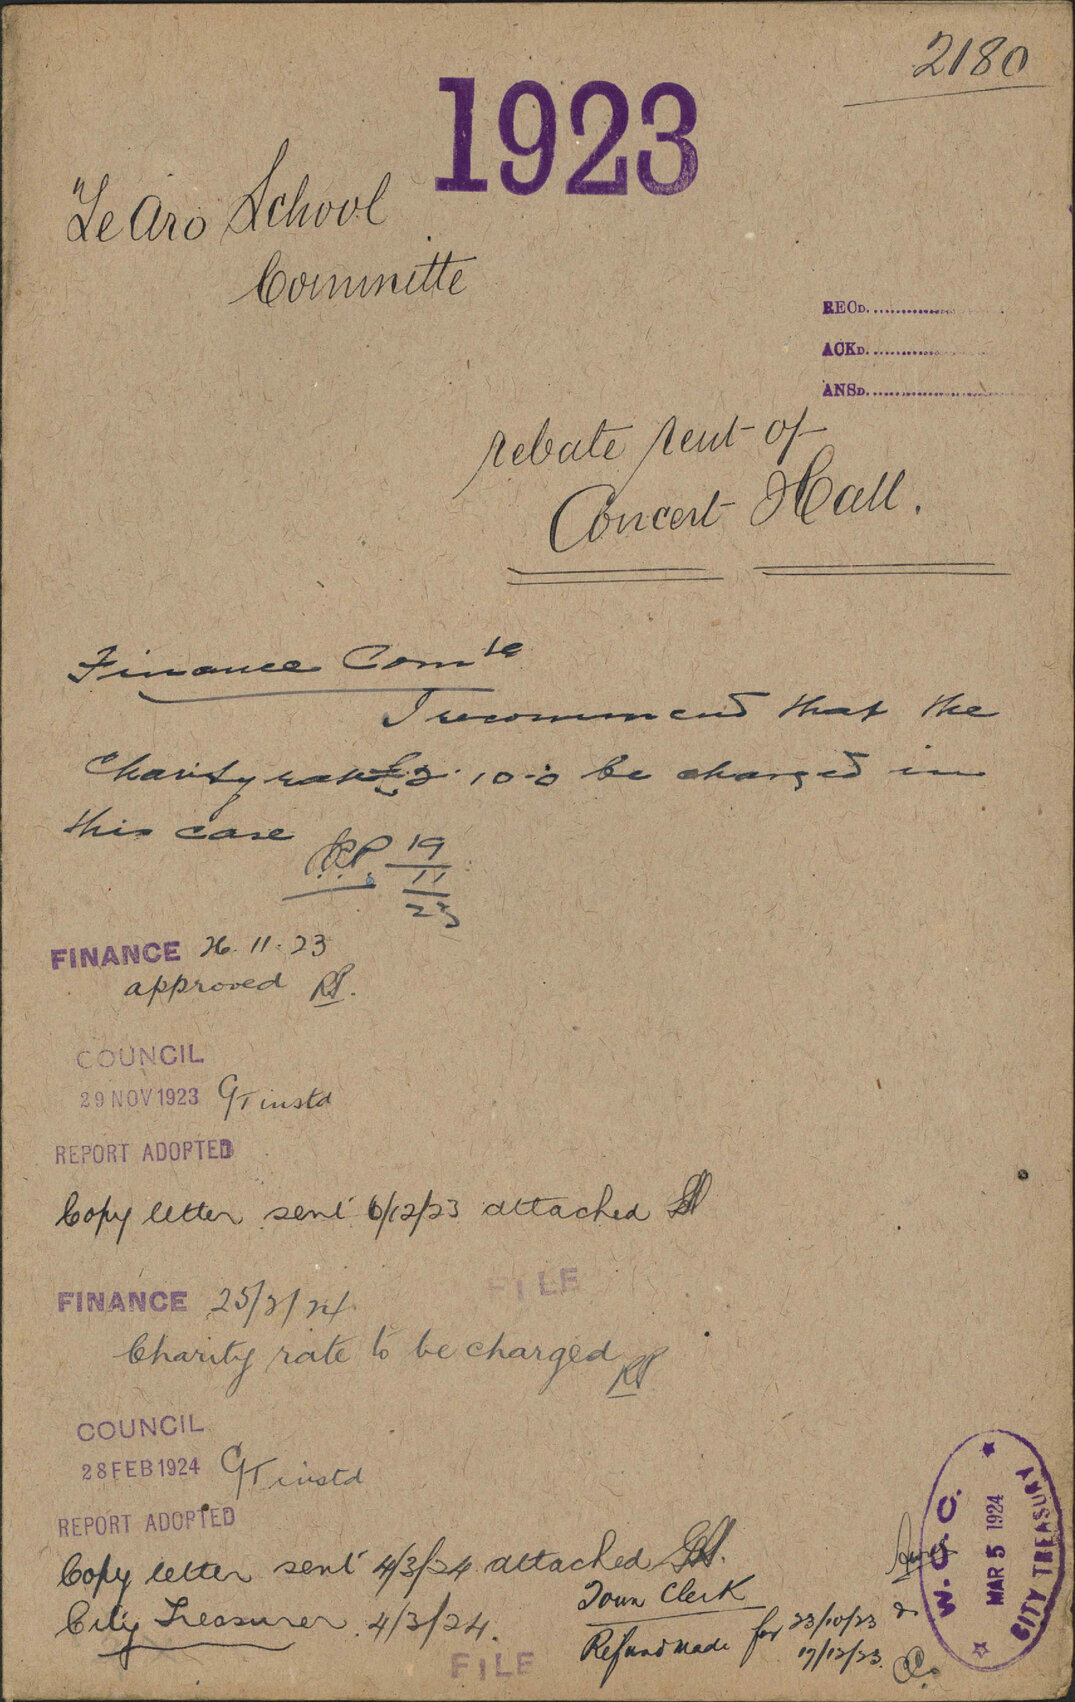 2180
1923
"Te Aro School
Committe
RECD.
ACKD.
ANSD.
rebate rent of
Concert Hall.
Finance Comte
I recommend that the
Charity rate £2.10-0 be charged in
this case
19
11
23
FINANCE 26.11.23
approved
COUNCIL
29 NOV 1923 CT instd
REPORT ADOPTED
Copy letter sent 6/12/23 attached
FILE
FINANCE 25/2/24
Charity rate to be charged
COUNCIL
28 FEB 1924 CT instd
REPORT ADOPTED
Copy letter sent 4/3/24 attached
City Treasurer 4/3/24.
Town Clerk
Refund made for 23/10/23
17/12/23.
FILE
W.C.C.
MAR 5 1924
CITY TREASURY